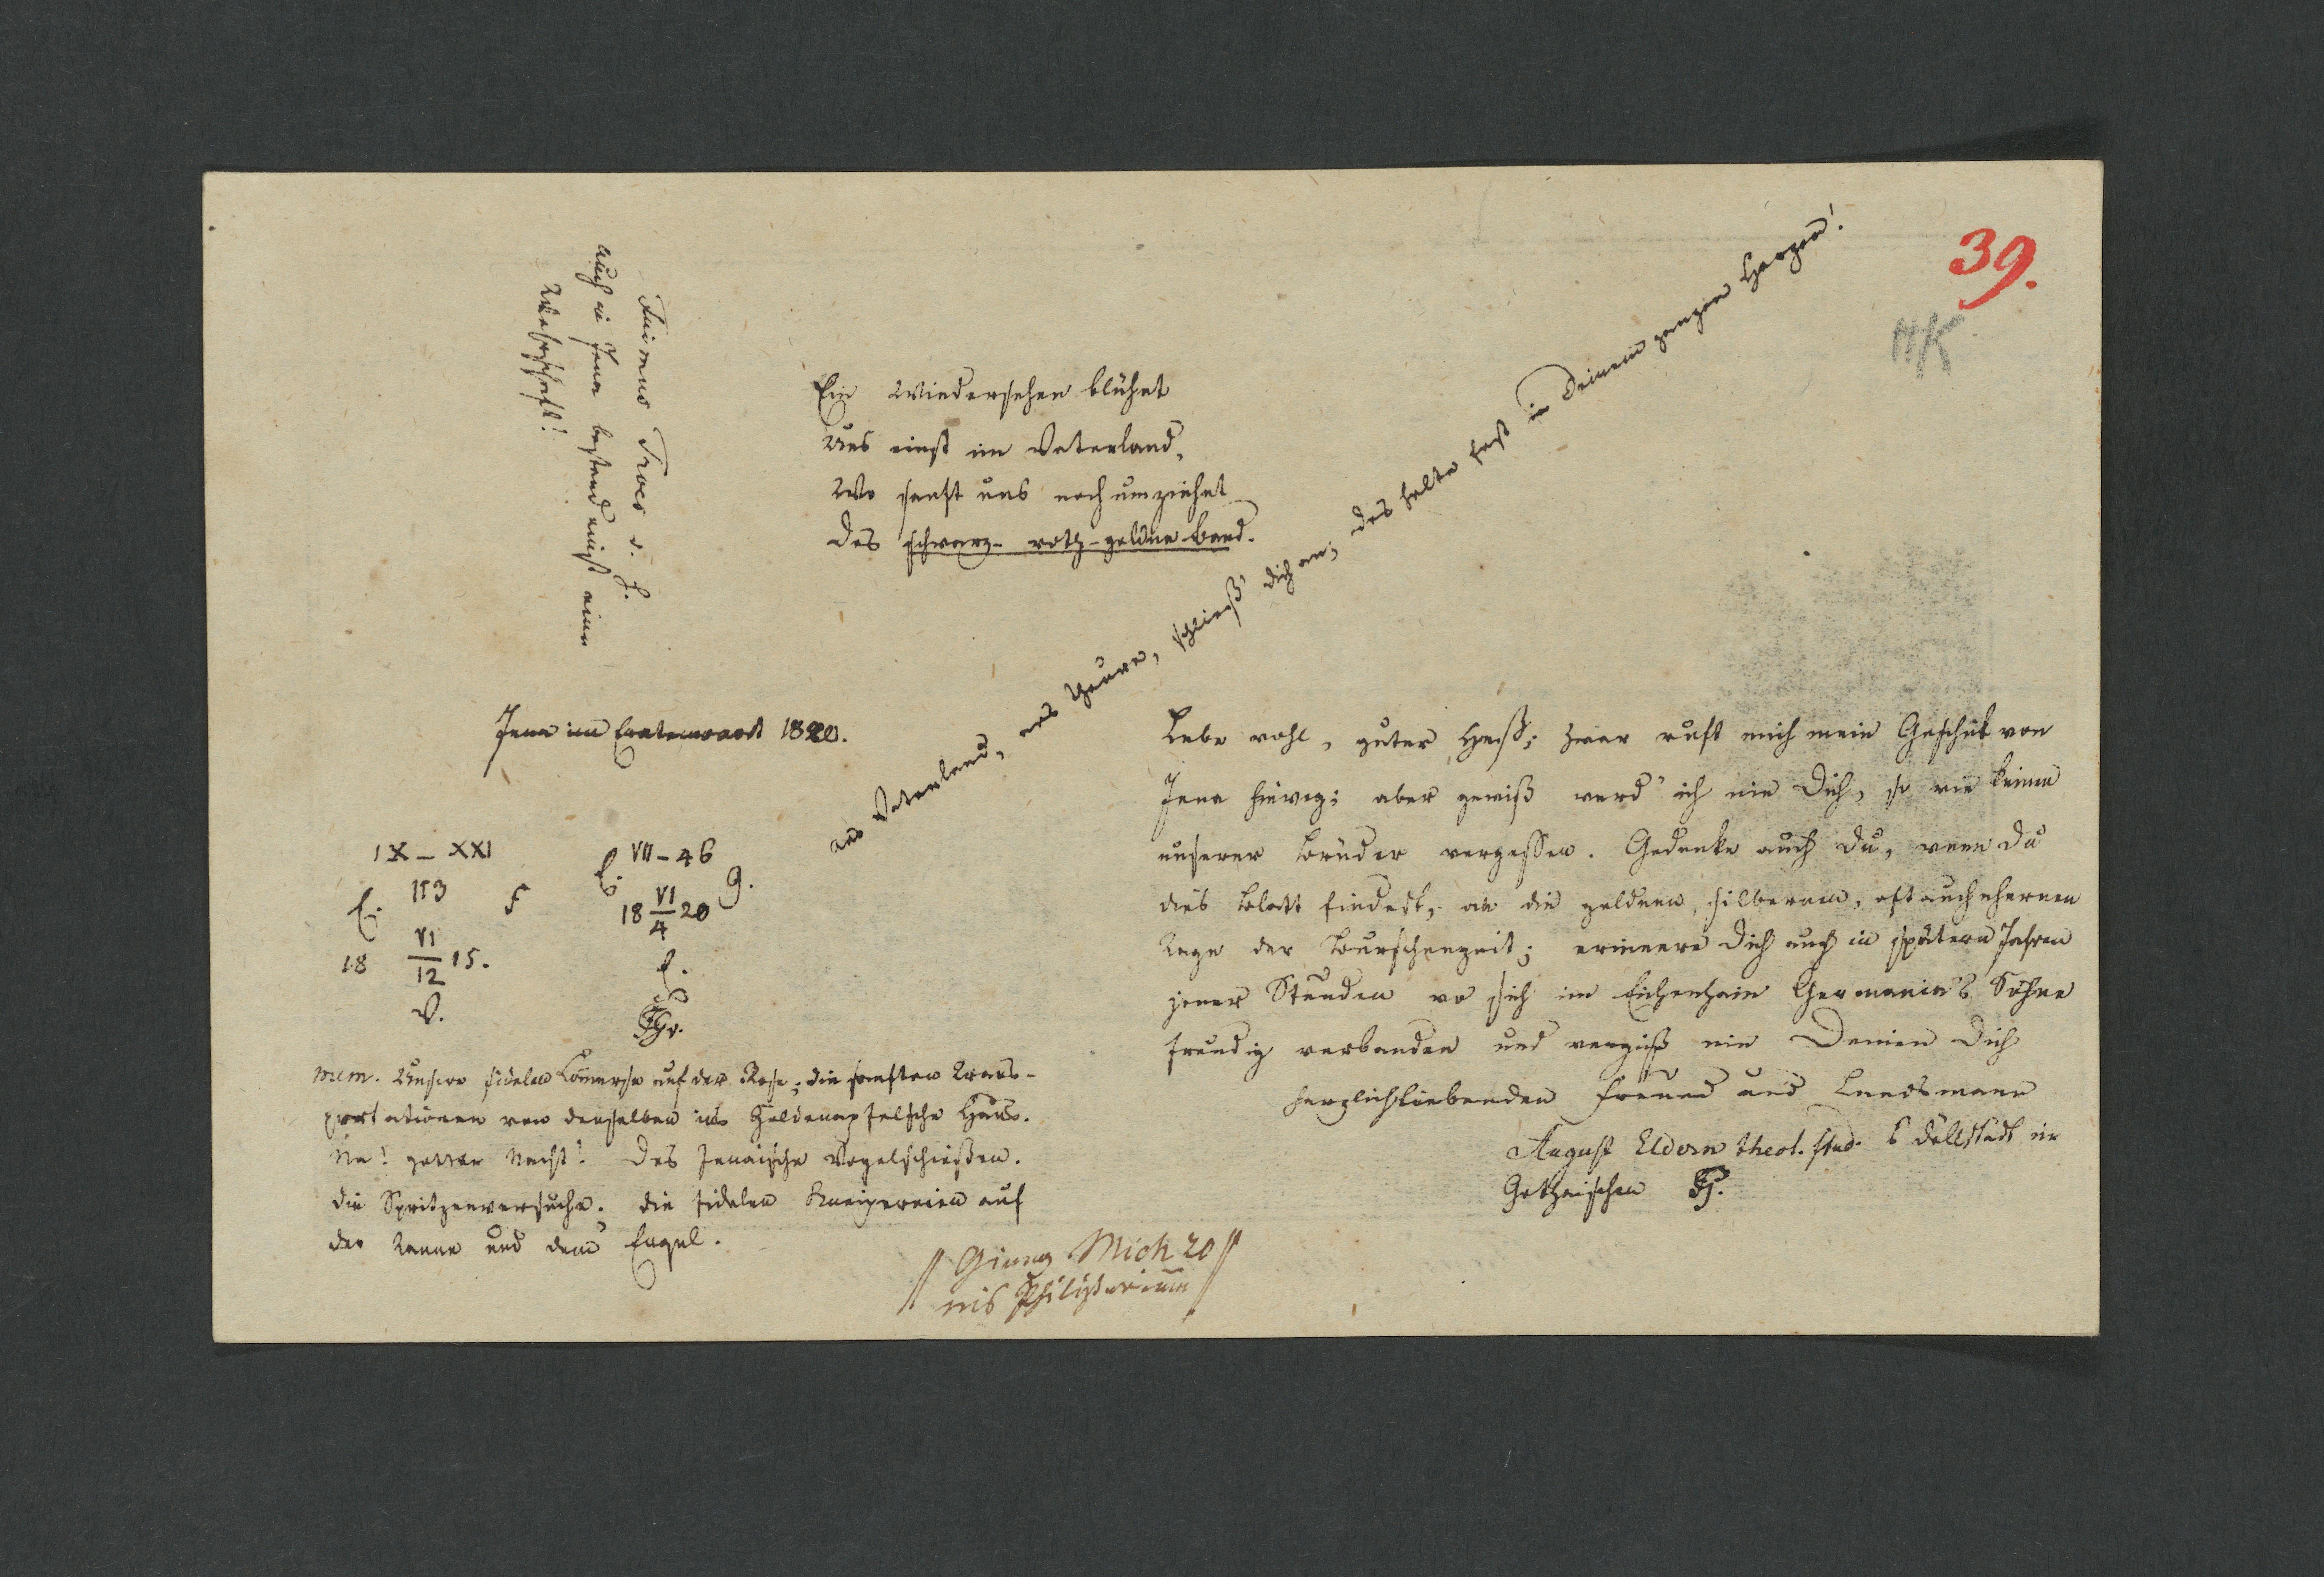 39.
HK
Fuimus Troes d. h.
auch in Jena bestand einst eine
Burschenschaft!
Ein Wiedersehen blühet
Uns einst im Vaterland,
Wo sanft uns noch umziehet
Das schwarz-roth-goldne Band.
ans Vaterland, ans theure, schließ' dich an; das halte fest in Deinem ganzen Herzen!
Jena im 1820.
IX – XXI
E. 113 F
18 VI/12 15.
V.
E. VII – 46 G.
18 VI/4 20
E.
mem. Unsere fidelen Commerse auf der Rose; die sanften Trans-
portationen von denselben ins Goldenapfelsche Haus.
Na! gutter Nacht! Das Jenaische Vogelschießen.
die Spritzenversuche. die fidelen Kneipereien auf
der Tanne und dem Engel.
Lebe wohl, guter Heß; zwar ruft mich mein Geschik von
Jena hinweg; aber gewiß werd' ich nie Dich, so wie keinen
unserer Brüder vergessen. Gedenke auch Du, wenn Du
dies Blatt findest, an die goldnen, silbernen, oft auch ehernen
Tage der Burschenzeit; erinnere Dich auch in spätern Jahren
jener Stunden wo sich im Eichenhain Germania's Söhne
freudig verbanden und vergiß nie Deinen Dich
herzlichliebenden Freund und Landsmann
August Eldern theol. stud. Döllstädt im
Gothaischen
// Gieng Mich 20 //
ins Philisterium